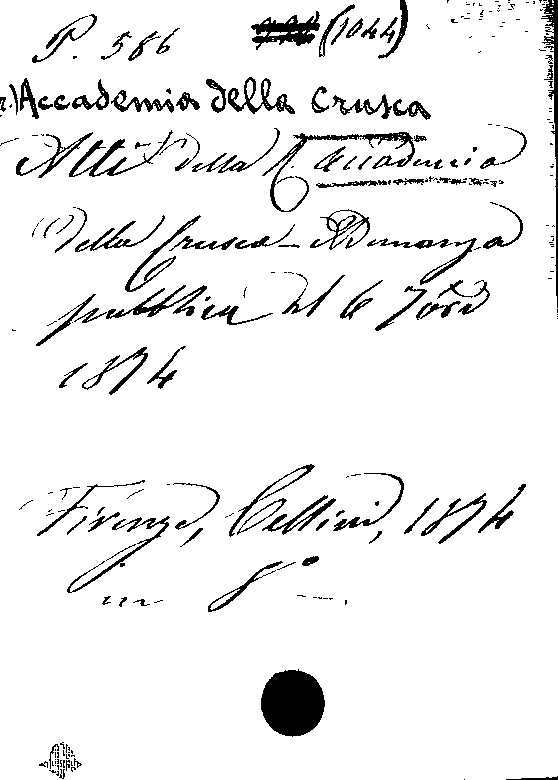 P. 586 (1044)
Accademia della Crusca
Atti della R. Accademia
della Crusca - Adunanza
pubblica del 6 7bre
1874
Firenze, Cellini, 1874
in 8º -.